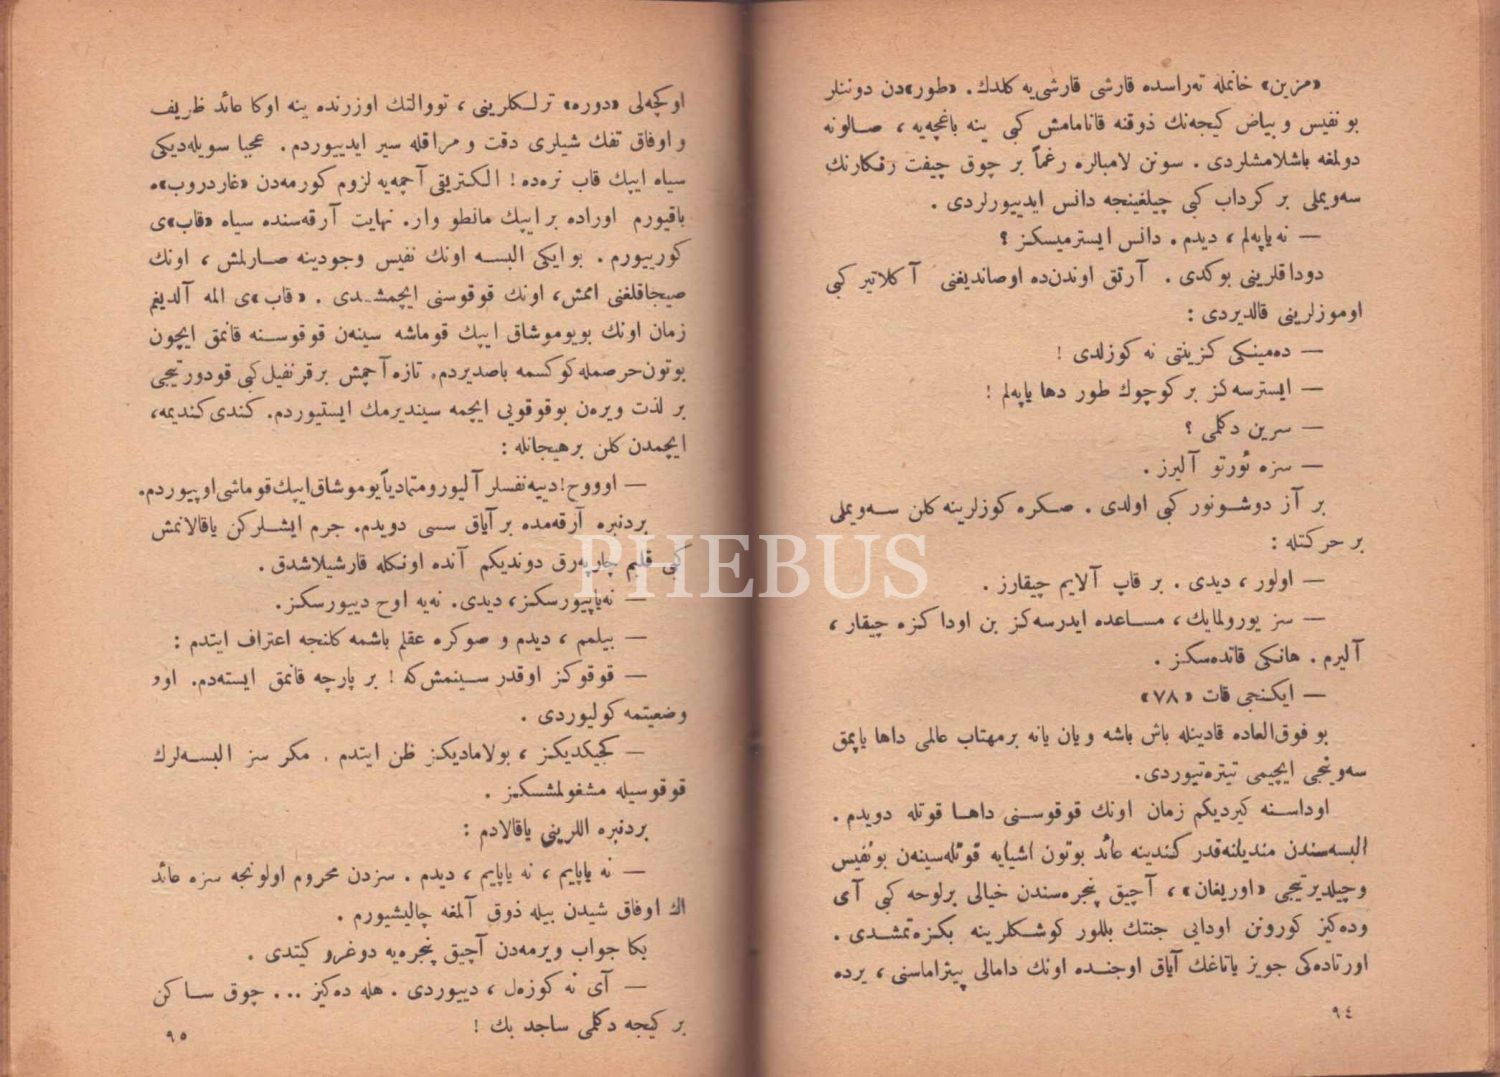 «مزين» خانمله ته‌راسده قارشى قارشى‌يه كلدك. «طور»دن دوننلر
بو نفيس و بياض كيجه‌نك ذوقنه قانامامش كبى ينه باغچه‌يه، صالونه
دولمغه باشلامشلردى. سونن لامبالره رغماً بر چوق چيفت رفكارنك
سه‌ويملى بر كرداب كبى چيلغينجه دانس ايدييورلردى.
— نه‌ياپه‌لم، ديدم. دانس ايسترميسكز؟
دوداقلرينى بوكدى. آرتق اوندن‌ده اوصانديغنى آكلاتير كبى
اوموزلرينى قالديردى:
— ده‌مينكى كزينتى نه كوزلدى!
— ايسترسه‌كز بر كوچوك طور دها ياپه‌لم!
— سرين دكلمى؟
— سزه ئورتو آليرز.
بر آز دوشونور كبى اولدى. صكره كوزلرينه كلن سه‌ويملى
بر حركتله:
— اولور، ديدى. بر قاپ آلايم چيقارز.
— سز يورولمايك، مساعده ايدرسه‌كز بن اوداكزه چيقار،
آليرم. هانكى قاتده‌سكز.
— ايكنجى قات «٧٨»
بو فوق‌العاده قادينله باش باشه و يان يانه برمهتاب عالمى داها ياپمق
سه‌ونجى ايچيمى تيتره‌تيوردى.
اوداسنه كيرديكم زمان اونك قوقوسنى داها قوتله دويدم.
البسه‌سندن منديلنه‌قدر كندينه عائد بوتون اشيايه قوتله‌سينه‌ن بونفيس
وچيلديرتيجى «اوريغان»، آچيق پنجره‌سندن خيالى برلوحه كبى آى
وده‌كيز كورونن اودايى جنتك بللور كوشكلرينه بكزه‌تمشدى.
اورتاده‌كى جويز ياتاغك آياق اوجنده اونك دامالى پيژاماسنى، يرده
٩٤
اوكچه‌لى «دوره» ترلكلرينى، تووالتك اوزرنده ينه اوكا عائد ظريف
و اوفاق تفك شيلرى دقت و مراقله سير ايدييوردم. عجبا سويله‌ديكى
سياه ايپك قاب نره‌ده! الكتريقى آچمه‌يه لزوم كورمه‌دن «غاردروب»ه
باقيورم اوراده بر ايپك مانطو وار. نهايت آرقه‌سنده سياه «قاب»ى
كوربيورم. بو ايكى البسه اونك نفيس وجودينه صارلمش، اونك
صيجاقلغنى امش، اونك قوقوسنى ايچمشدى. «قاب»ى المه آلديغم
زمان اونك بويوموشاق ايپك قوماشه سينه‌ن قوقوسنه قانمق ايچون
بوتون‌حرصمله كوكسمه باصديردم. تازه آچمش برقرنفيل كبى قودورتيجى
بر لذت ويره‌ن بوقوقويى ايچمه سينديرمك ايستيوردم. كندى كنديمه،
ايچمدن كلن برهيجانله:
— اوووح! دييه‌نفسلر آليورو متمادياً يوموشاق ايپك قوماشى اوپيوردم.
بردنبره آرقه‌مده بر آياق سسى دويدم. جرم ايشلركن ياقالانمش
كبى قلبم چارپه‌رق دونديكم آنده اونكله قارشيلاشدق.
— نه‌ياپيورسكز، ديدى. نه‌يه اوح دييورسكز.
— بيلمم، ديدم و صوكره عقلم باشمه كلنجه اعتراف ايتدم:
— قوقوكز اوقدر سينمش‌كه! بر پارچه قانمق ايسته‌دم. او،
وضعيتمه كوليوردى.
— كجيكديكز، بولاماديكز ظن ايتدم. مكر سز البسه‌لرك
قوقوسيله مشغولمشسكز.
بردنبره اللرينى ياقالادم:
— نه ياپايم، نه ياپايم، ديدم. سزدن محروم اولونجه سزه عائد
اك اوفاق شيدن بيله ذوق آلمغه چاليشيورم.
بكا جواب ويرمه‌دن آچيق پنجره‌يه دوغرو كيتدى.
— آى نه كوزه‌ل، دييوردى. هله ده‌كيز ... چوق ساكن
بر كيجه دكلمى ساجد بك!
٩٥
PHEBUS